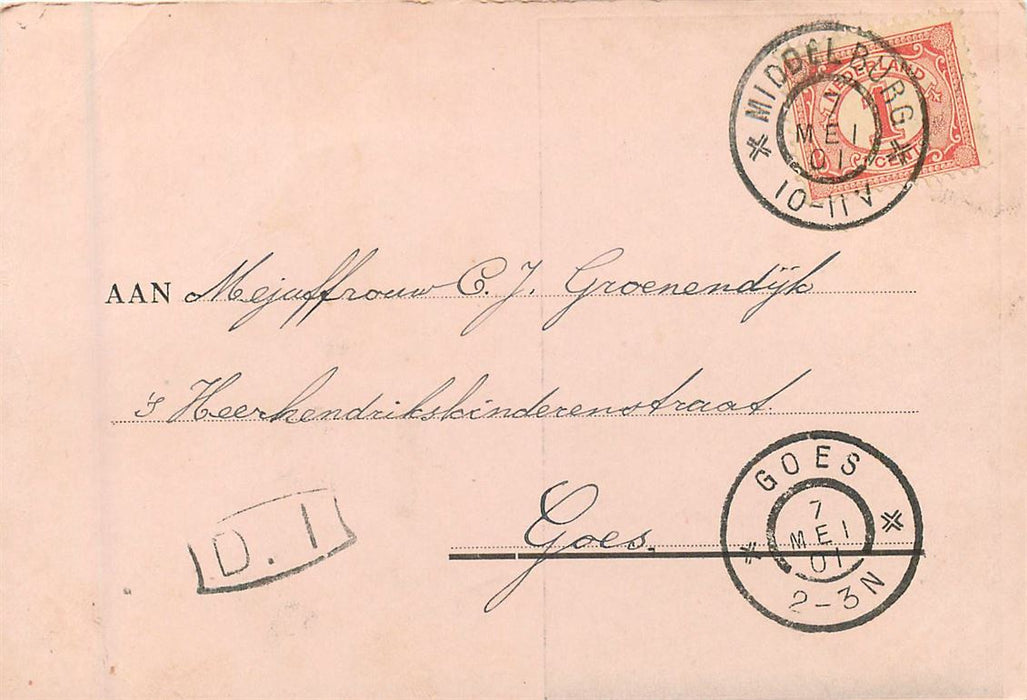 MIDDELBURG
7
MEI
01
10-11V
NEDERLAND
1
CENT
AAN Mejuffrouw C. J. Groenendijk
's Heerhendrikskinderenstraat.
Goes.
GOES
7
MEI
01
2-3N
D. 1